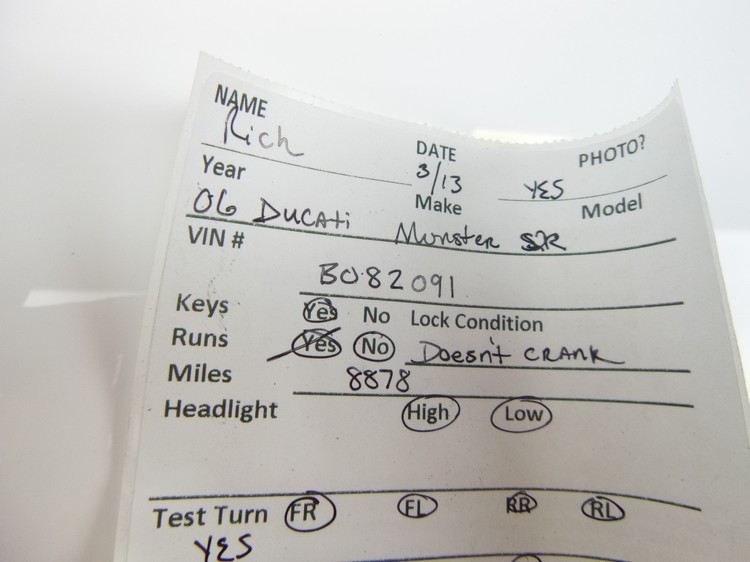 NAME
Rich
DATE
3/13
PHOTO?
YES
Year
Make
Model
06 Ducati Monster S2R
VIN #
B082091
Keys Yes No Lock Condition
Runs Yes No Doesn't CRANK
Miles 8878
Headlight High Low
Test Turn FR FL RR RL
YES